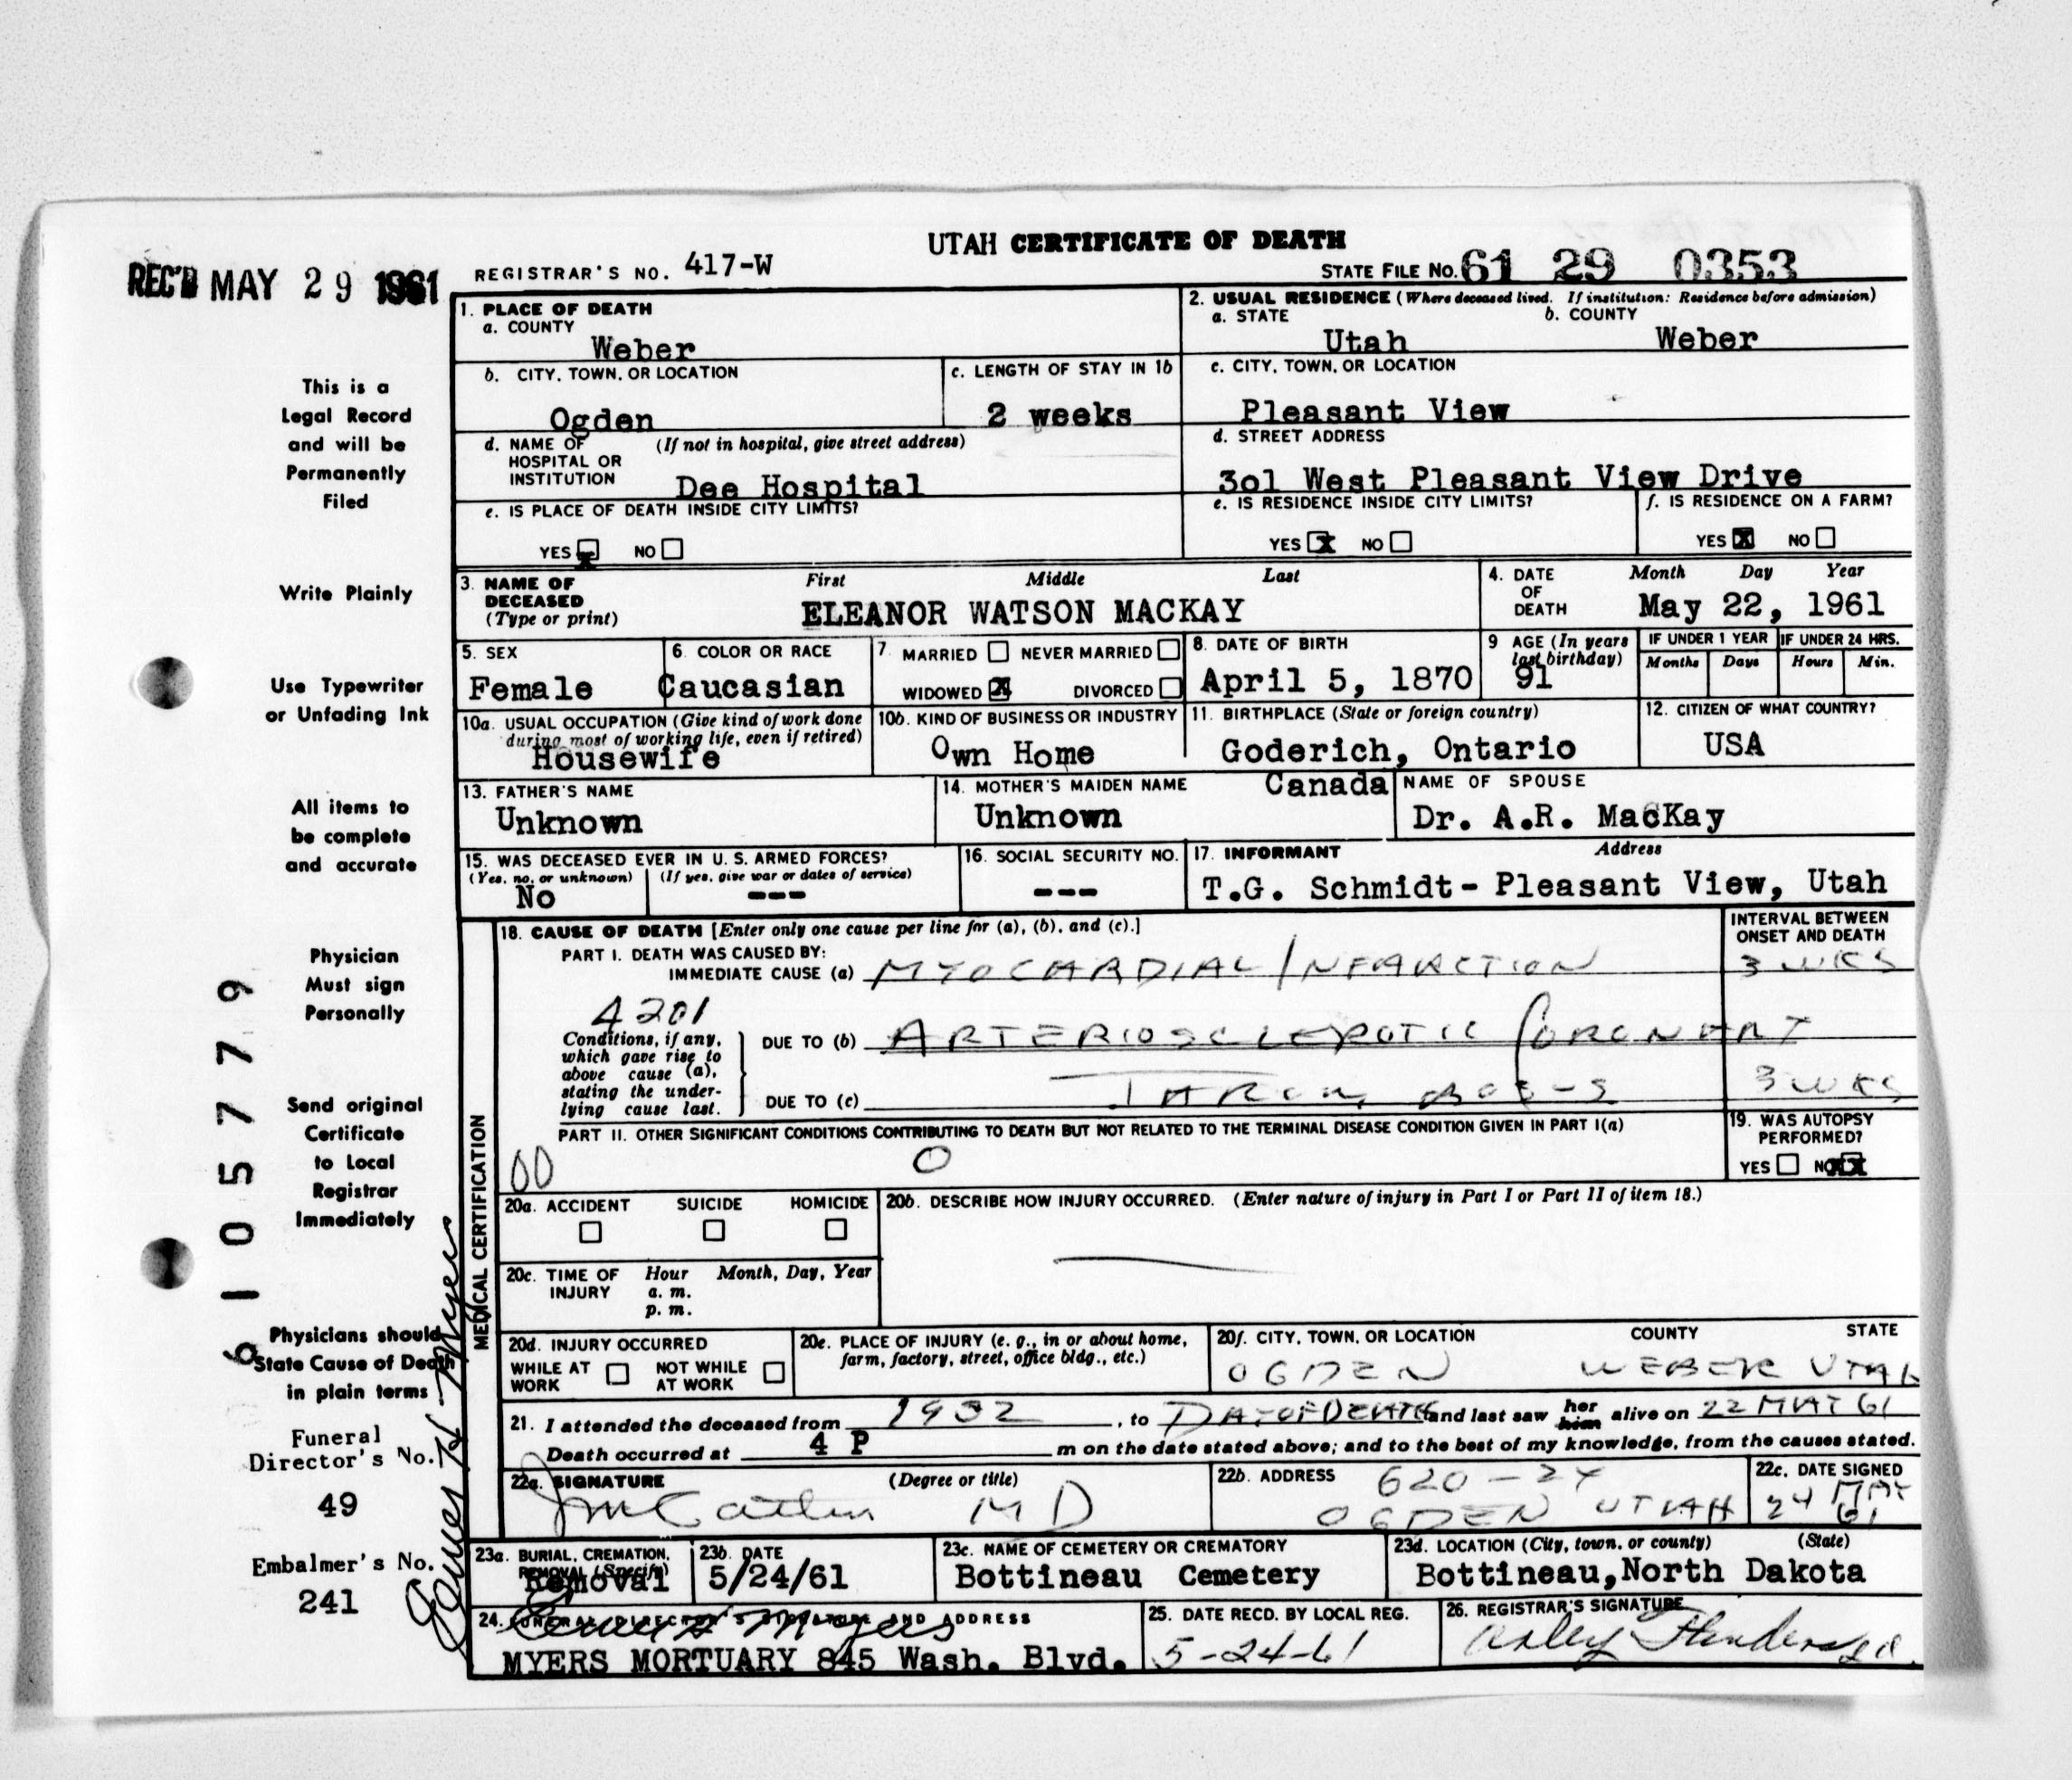 UTAH CERTIFICATE OF DEATH
REC'D MAY 29 1961
REGISTRAR'S NO. 417-W
STATE FILE NO. 61 29 0353
1. PLACE OF DEATH
a. COUNTY
Weber
2. USUAL RESIDENCE (Where deceased lived. If institution: Residence before admission)
a. STATE b. COUNTY
Utah Weber
b. CITY, TOWN, OR LOCATION
Ogden
c. LENGTH OF STAY IN 1b
2 weeks
c. CITY, TOWN, OR LOCATION
Pleasant View
d. NAME OF (If not in hospital, give street address)
HOSPITAL OR
INSTITUTION Dee Hospital
d. STREET ADDRESS
3o1 West Pleasant View Drive
e. IS PLACE OF DEATH INSIDE CITY LIMITS?
YES X NO
e. IS RESIDENCE INSIDE CITY LIMITS?
YES X NO
f. IS RESIDENCE ON A FARM?
YES X NO
3. NAME OF First Middle Last
DECEASED
(Type or print) ELEANOR WATSON MACKAY
4. DATE Month Day Year
OF
DEATH May 22, 1961
5. SEX
Female
6. COLOR OR RACE
Caucasian
7. MARRIED NEVER MARRIED
WIDOWED X DIVORCED
8. DATE OF BIRTH
April 5, 1870
9 AGE (In years
last birthday)
91
IF UNDER 1 YEAR
Months Days
IF UNDER 24 HRS.
Hours Min.
10a. USUAL OCCUPATION (Give kind of work done
during most of working life, even if retired)
Housewife
10b. KIND OF BUSINESS OR INDUSTRY
Own Home
11. BIRTHPLACE (State or foreign country)
Goderich, Ontario
Canada
12. CITIZEN OF WHAT COUNTRY?
USA
13. FATHER'S NAME
Unknown
14. MOTHER'S MAIDEN NAME
Unknown
NAME OF SPOUSE
Dr. A.R. MacKay
15. WAS DECEASED EVER IN U. S. ARMED FORCES?
(Yes, no, or unknown) (If yes, give war or dates of service)
No ---
16. SOCIAL SECURITY NO.
---
17. INFORMANT Address
T.G. Schmidt - Pleasant View, Utah
MEDICAL CERTIFICATION
18. CAUSE OF DEATH [Enter only one cause per line for (a), (b), and (c).]
INTERVAL BETWEEN
ONSET AND DEATH
PART I. DEATH WAS CAUSED BY:
IMMEDIATE CAUSE (a) MYOCARDIAL INFARCTION 3 WKS
4201
Conditions, if any,
which gave rise to
above cause (a),
stating the under-
lying cause last.
DUE TO (b) ARTERIOSCLEROTIC CORONARY
DUE TO (c) THROMBOSIS 3 WKS
PART II. OTHER SIGNIFICANT CONDITIONS CONTRIBUTING TO DEATH BUT NOT RELATED TO THE TERMINAL DISEASE CONDITION GIVEN IN PART I(a)
00 0
19. WAS AUTOPSY
PERFORMED?
YES NO XX
20a. ACCIDENT SUICIDE HOMICIDE
20b. DESCRIBE HOW INJURY OCCURRED. (Enter nature of injury in Part I or Part II of item 18.)
20c. TIME OF Hour Month, Day, Year
INJURY a. m.
p. m.
20d. INJURY OCCURRED
WHILE AT NOT WHILE
WORK AT WORK
20e. PLACE OF INJURY (e. g., in or about home,
farm, factory, street, office bldg., etc.)
20f. CITY, TOWN, OR LOCATION COUNTY STATE
OGDEN WEBER UTAH
21. I attended the deceased from 1932, to DAY OF DEATH and last saw her him alive on 22 MAY 61
Death occurred at 4 P m on the date stated above; and to the best of my knowledge, from the causes stated.
22a. SIGNATURE (Degree or title)
MD
22b. ADDRESS
620 - 24
OGDEN UTAH
22c. DATE SIGNED
24 MAY
61
23a. BURIAL, CREMATION,
REMOVAL (Specify)
Removal
23b. DATE
5/24/61
23c. NAME OF CEMETERY OR CREMATORY
Bottineau Cemetery
23d. LOCATION (City, town, or county) (State)
Bottineau, North Dakota
24. FUNERAL DIRECTOR'S SIGNATURE AND ADDRESS
MYERS MORTUARY 845 Wash. Blvd.
25. DATE RECD. BY LOCAL REG.
5-24-61
26. REGISTRAR'S SIGNATURE
This is a
Legal Record
and will be
Permanently
Filed
Write Plainly
Use Typewriter
or Unfading Ink
All items to
be complete
and accurate
Physician
Must sign
Personally
Send original
Certificate
to Local
Registrar
Immediately
Physicians should
State Cause of Death
in plain terms
Funeral
Director's No.
49
Embalmer's No.
241
6105779